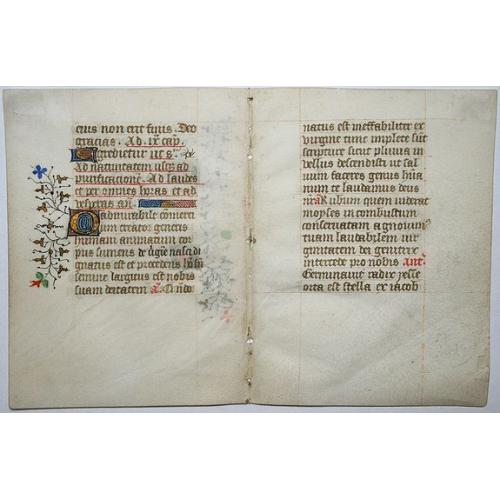 eius non erit finis. Deo
gracias. Ad ix cap.
Egredietur ut s.
A natiuitatem usq3 ad
purificacione. Ad laudes
et per omnes horas et ad
vesperas an.
O admirabile comerci
um creator generis
humani animatum cor
pus sumens de uigine nasci di
gnatus est et procedens ho sii
semine largitus est nobis
suam deitatem a. Qndo
natus est ineffabiliter ex
virgine tunc implete sūt
scripture sicut pluuia in
vellus descendisti ut sal
uum faceres genus hūa
num te laudamus deus
nr̄ a Rubum quem uiderat
moyses in combustum
conseruatam agnouim9
tuam laudabilem uir
ginitatem dei genitrix
intercede pro nobis Ant.
Germinauit radix yesse
orta est stella ex iacob